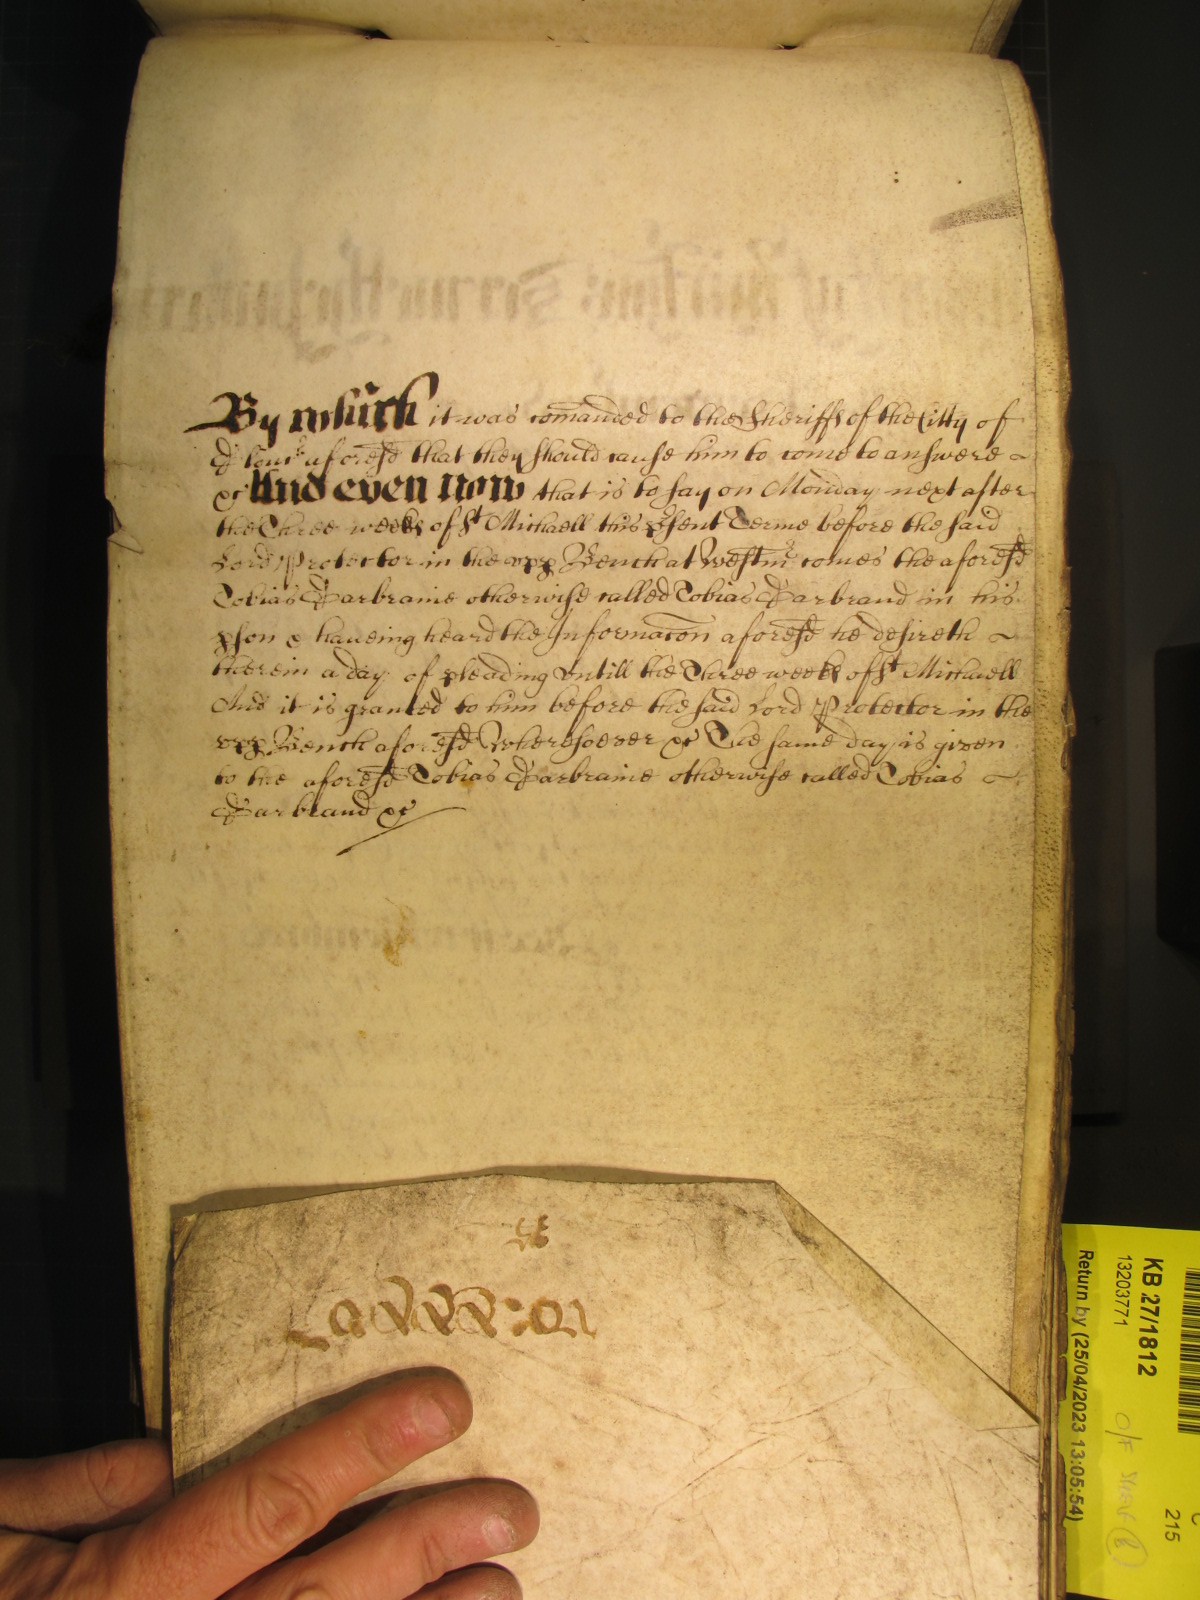 By which it was comanded to the Sheriffs of the Citty of
aforesd that they should cause him to come to answere
&c And even now that is to say on Monday next after
the Three weeks of St Michaell this psent Terme before the said
Lord Protector in the upp Bench at Westmr comes the aforesd
Tobias Harbraine otherwise called Tobias Harbrand in his
pson & haveing heard the Informacon aforesd he desireth
therein a day of pleading untill the Three weeks of St Michaell
And it is granted to him before the said Lord Protector in the
upp Bench aforesd Wheresoever &c The same day is given
to the aforesd Tobias Harbraine otherwise called Tobias
Harbrand &c
KB 27/1812
13203771
Return by (25/04/2023 13:05:54)
215